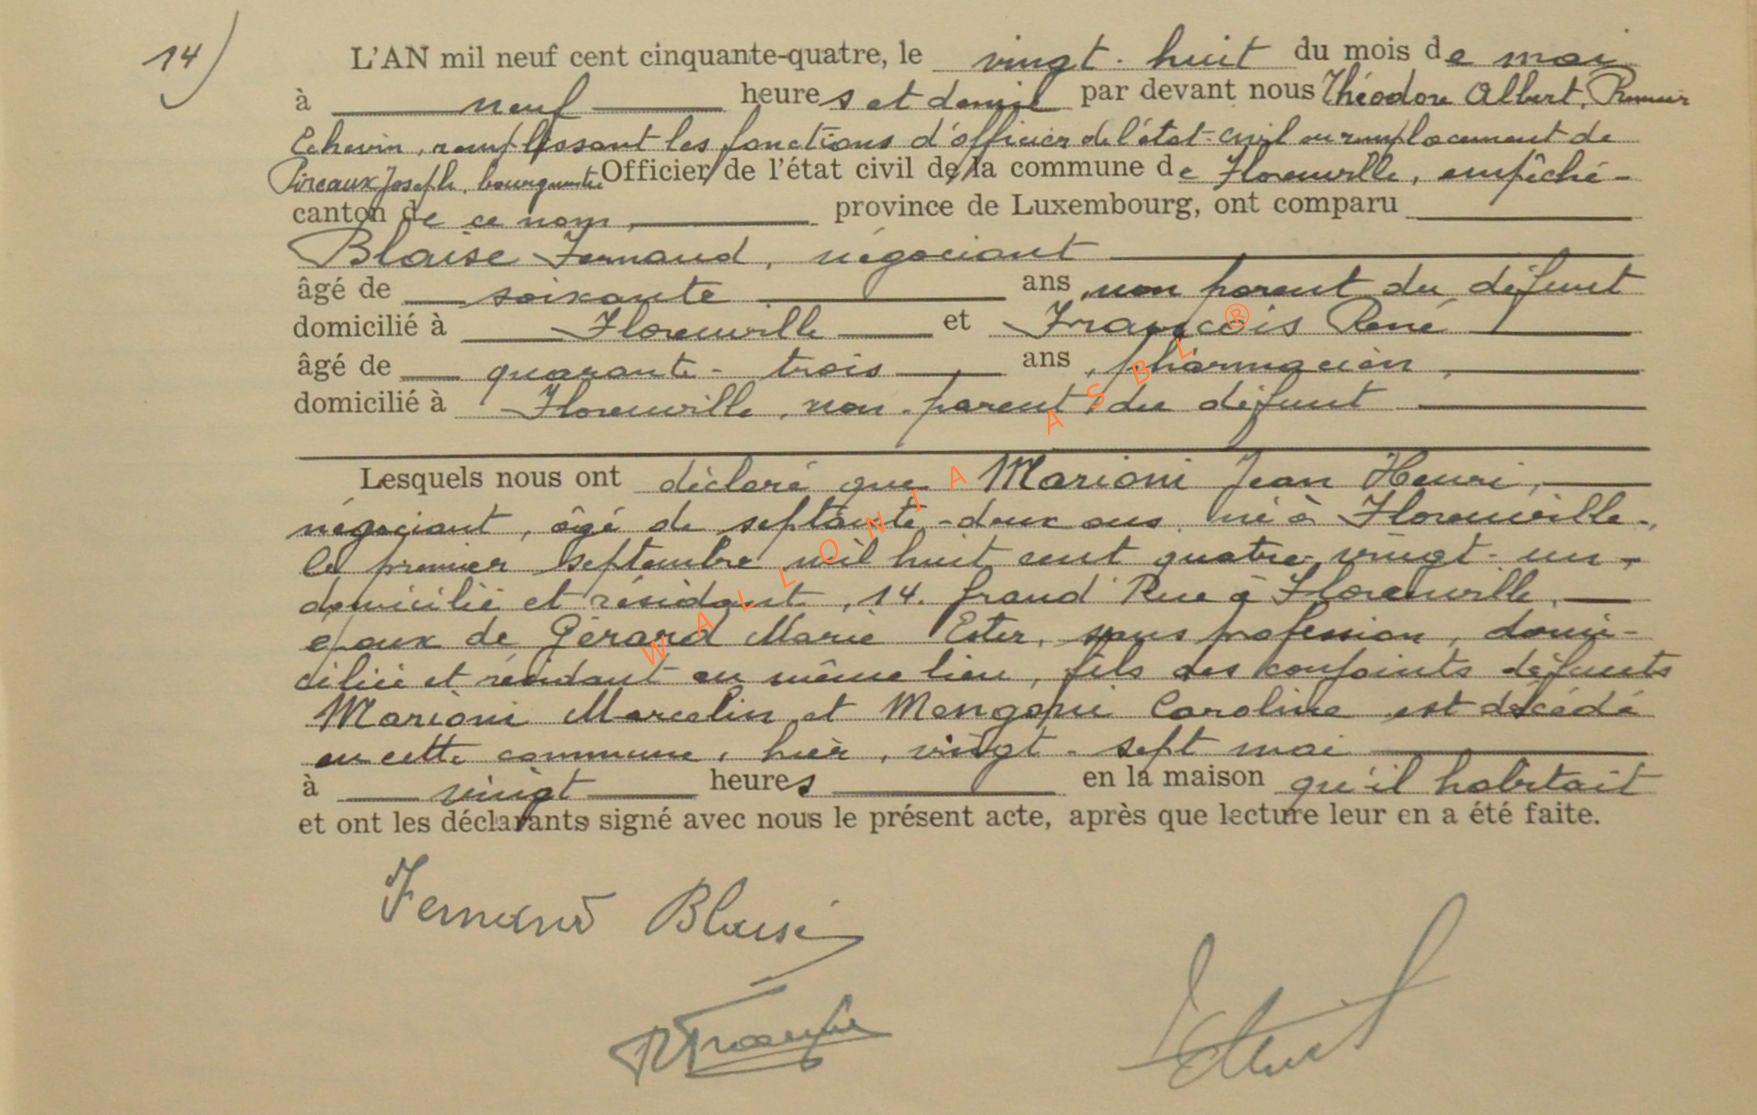 14)
L'AN mil neuf cent cinquante-quatre, le vingt-huit du mois de mai
à neuf heures et demie par devant nous Théodore Albert, Premier
Echevin, remplissant les fonctions d'officier de l'état-civil en remplacement de
Pireaux Joseph, bourgmestre Officier de l'état civil de la commune de Florenville, empêché -
canton de ce nom, province de Luxembourg, ont comparu
Blaise Fernand, négociant
âgé de soixante ans, non parent du défunt
domicilié à Florenville et François René
âgé de quarante-trois ans, pharmacien,
domicilié à Florenville, non parent du défunt
Lesquels nous ont déclaré que Marioni Jean Henri,
négociant, âgé de septante-deux ans, né à Florenville,
le premier septembre mil huit cent quatre-vingt-un,
domicilié et résidant, 14, Grand'Rue à Florenville,
époux de Gérard Marie Ester, sans profession, domi-
ciliée et résidant au même lieu, fils des conjoints défunts
Marioni Marcelin et Caroline est décédé
en cette commune, hier, vingt-sept mai
à vingt heures en la maison qu'il habitait
et ont les déclarants signé avec nous le présent acte, après que lecture leur en a été faite.
Fernand Blaise
WALLONIA ASBL ®